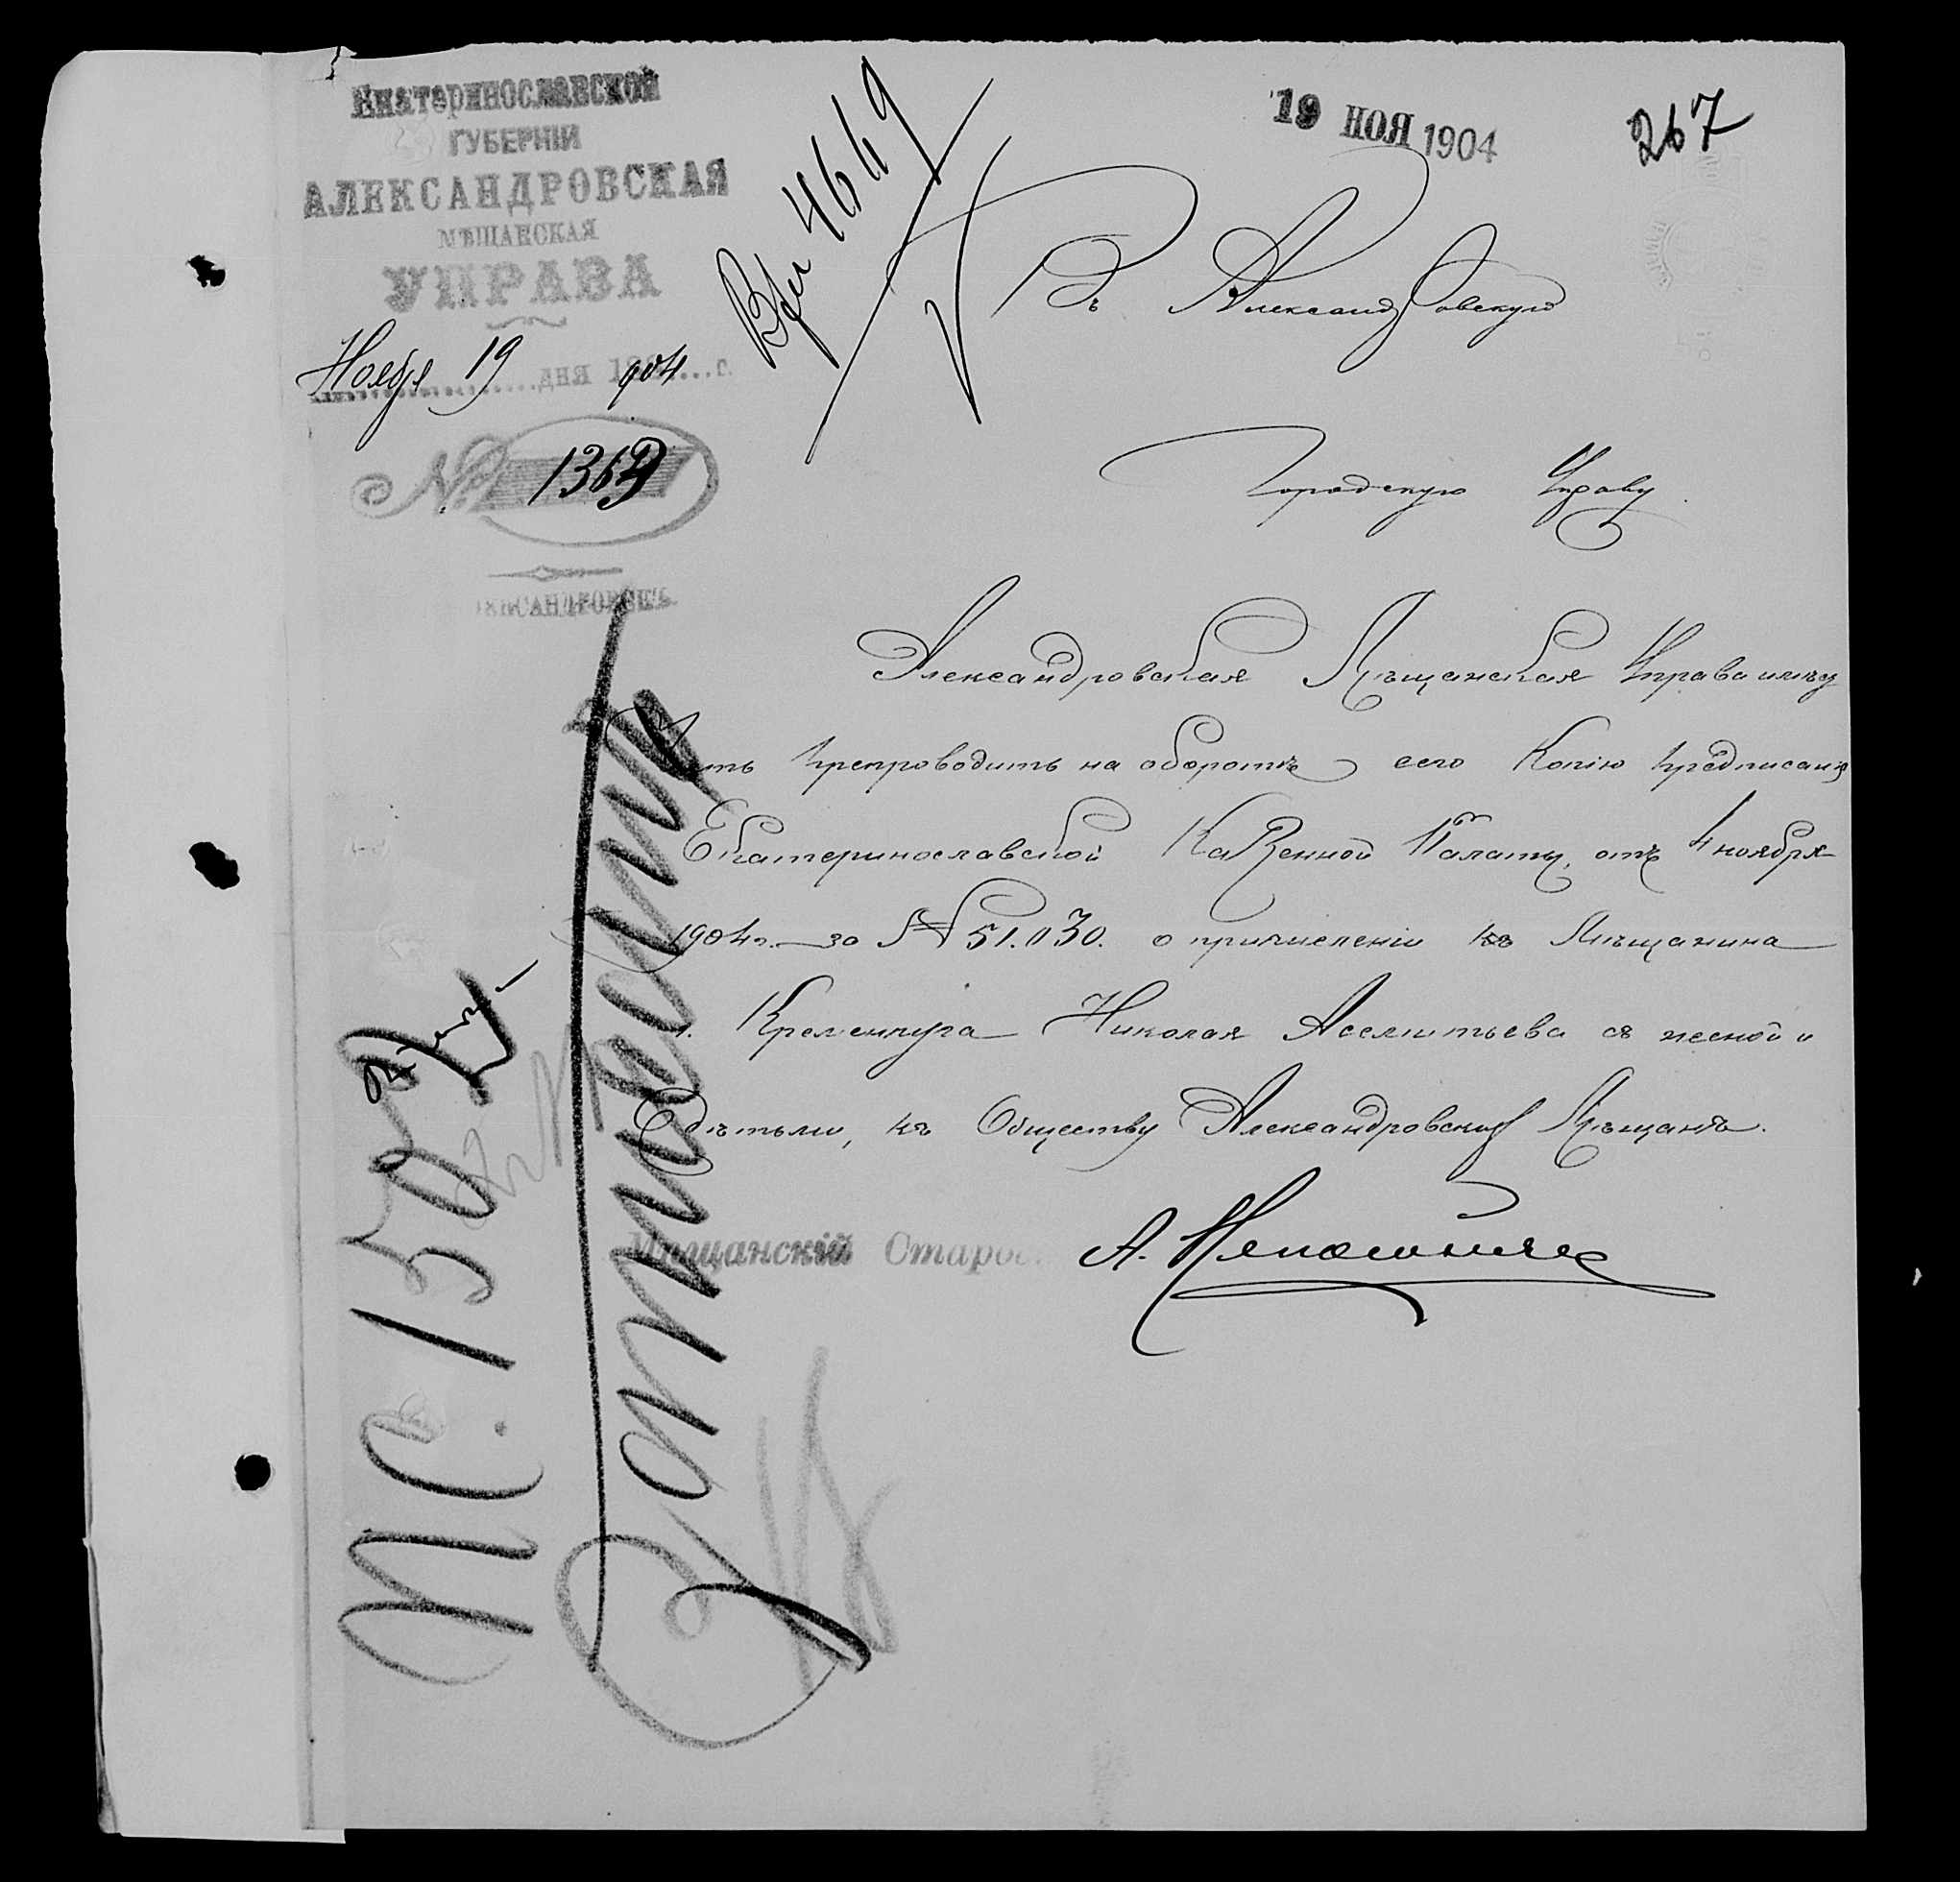 Екатеринославской
губерніи
АЛЕКСАНДРОВСКАЯ
мѣщанская
УПРАВА
Ноября 19 дня 1904 г.
№ 1369
Александровскъ
Вхд 4669
19 НОЯ 1904
267
Въ Александровскую
Городскую Управу.
Александровская Мѣщанская Управа имѣ
етъ препроводить на оборотѣ сего Копію предписанія
Екатеринославской Казенной Палаты, отъ 4 ноября
1904 г. за № 51.030. о причисленіи Мѣщанина
г. Кременчуга Николая с женой и
дѣтьми, къ Обществу Александровскихъ Мѣщанъ.
Мѣщанскій Старос
А.